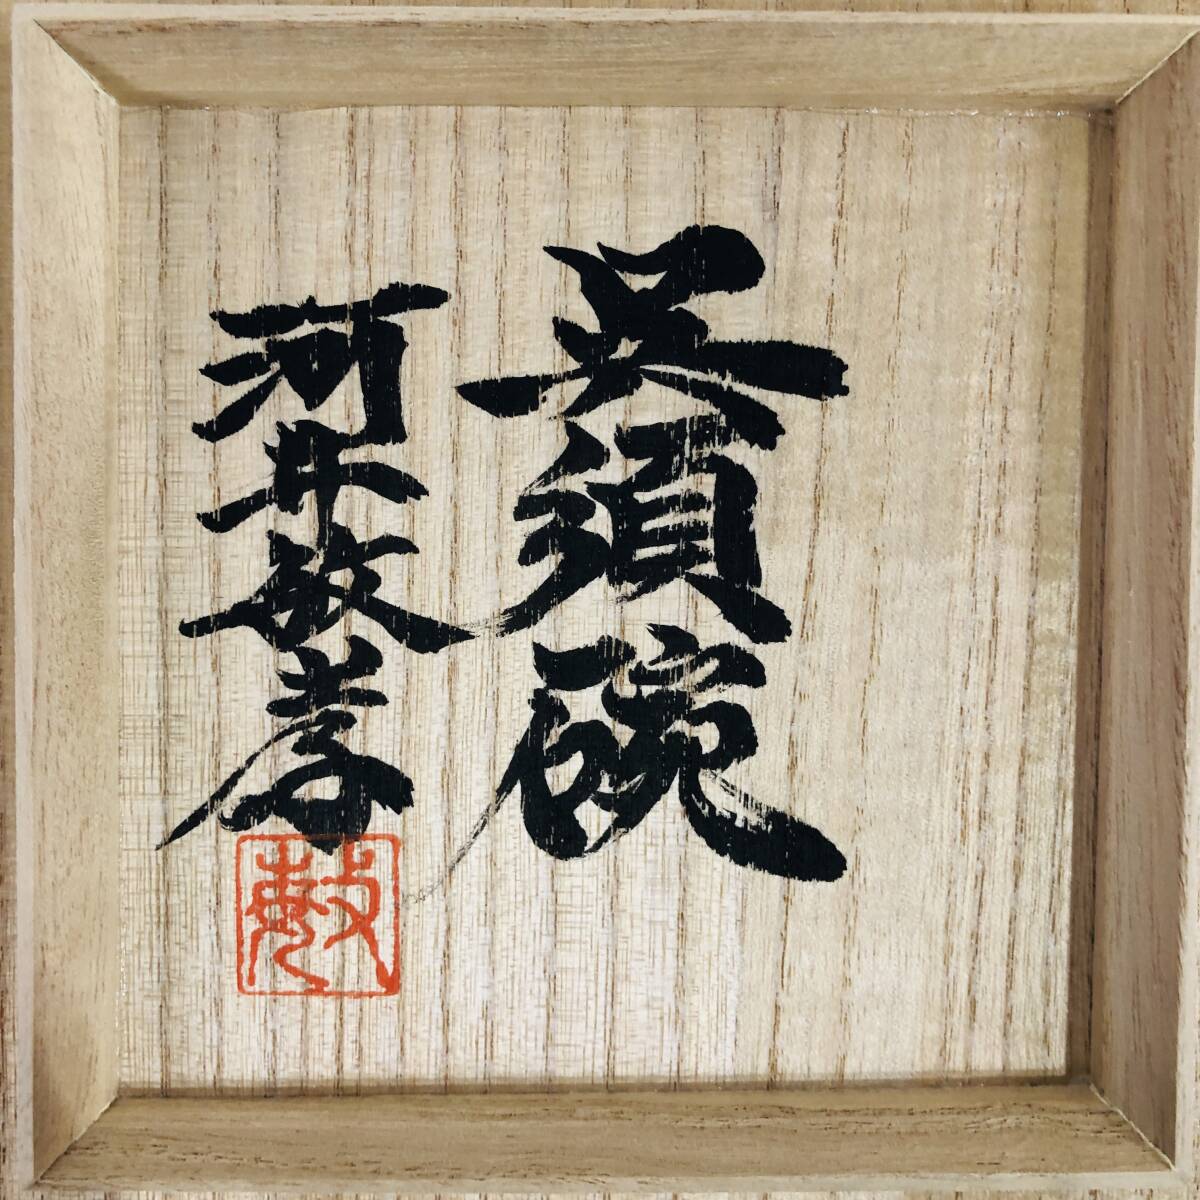 呉須碗
河井敏孝
敏